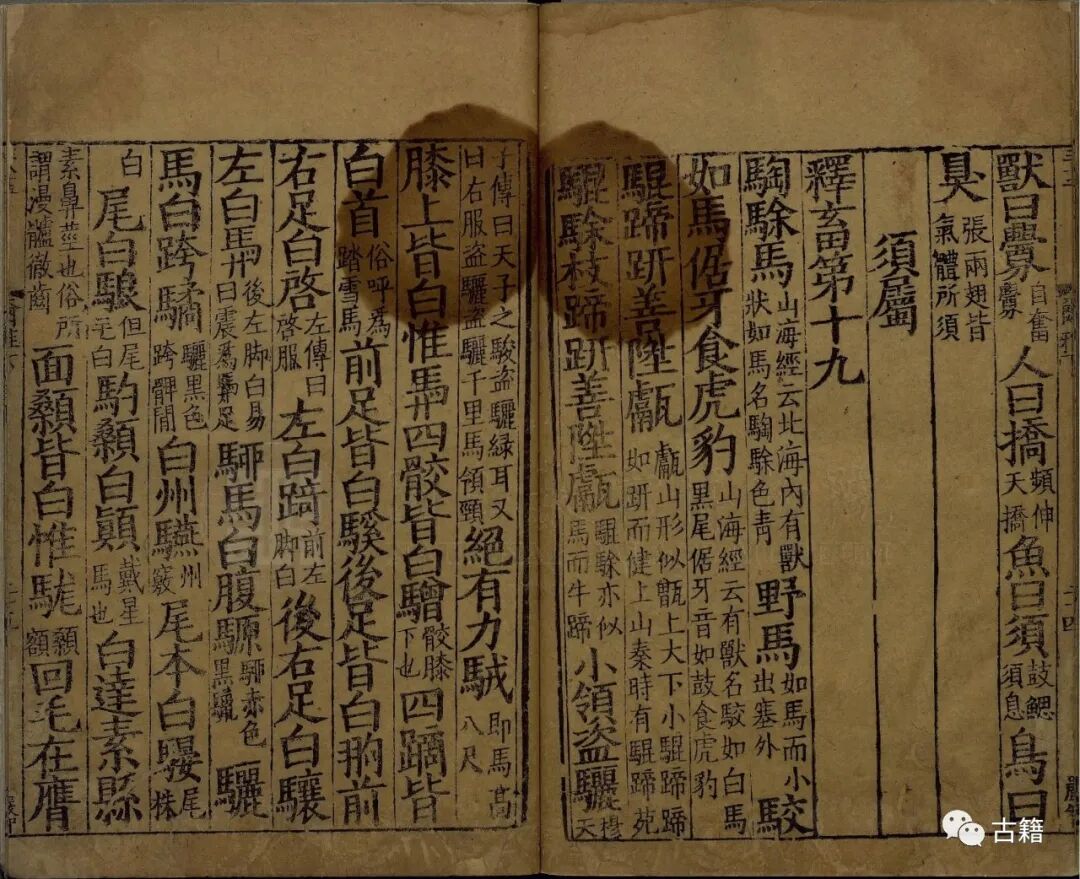 獸曰釁自奮釁人曰撟頻伸夭撟魚曰須鼓鰓須息鳥曰
狊張兩翅皆氣體所須
須屬
釋畜第十九
騊駼馬山海經云北海內有獸狀如馬名騊駼色青野馬如馬而小出塞外駮
如馬倨牙食虎豹山海經云有獸名駮如白馬黑尾倨牙音如鼓食虎豹
騉蹄趼善陞甗甗山形似甑上大下小騉蹄蹄如趼而健上山秦時有騉蹄苑
騉駼枝蹄趼善陞甗騉駼亦似馬而牛蹄小領盜驪穆天
子傳曰天子之駿盜驪綠耳又曰右服盜驪盜驪千里馬領頸絕有力駥即馬高八尺
膝上皆白惟馵四骹皆白驓骹膝下也四蹢皆
白首俗呼爲踏雪馬前足皆白騱後足皆白翑前
右足白啓左傳曰啓服左白踦前左脚白後右足白驤
左白馵後左脚白易曰震爲馵足駵馬白腹騵駵赤色黑鬣驪
馬白跨驈驪黑色跨髀間白州驠州竅尾本白騴尾株
白尾白駺但尾毛白馰顙白顚戴星馬也白達素縣
素鼻莖也俗所謂漫髗徹齒面顙皆白惟駹顙額回毛在膺
古籍